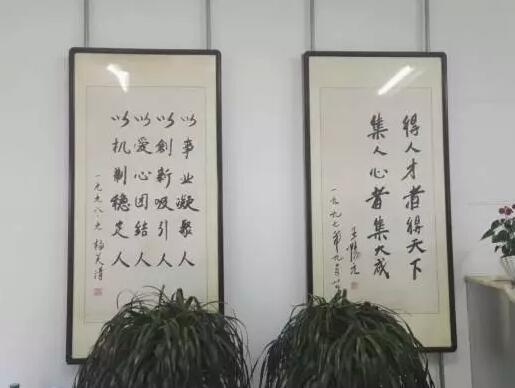 得人才者得天下
集人心者集大成
一九九七年九月
以事业凝聚人
以創新吸引人
以爱心团结人
以机制稳定人
一九九八.九